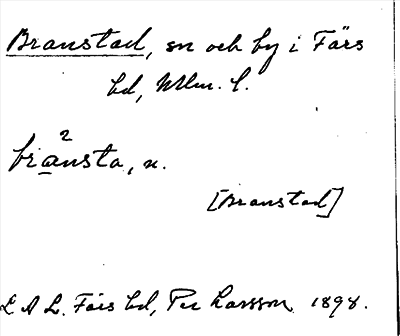 Branstad, sn och by i Färs
hd, Mlm. l.
2
bransta, n.
[Branstad]
L A L. Färs hd, Per Larsson 1898.